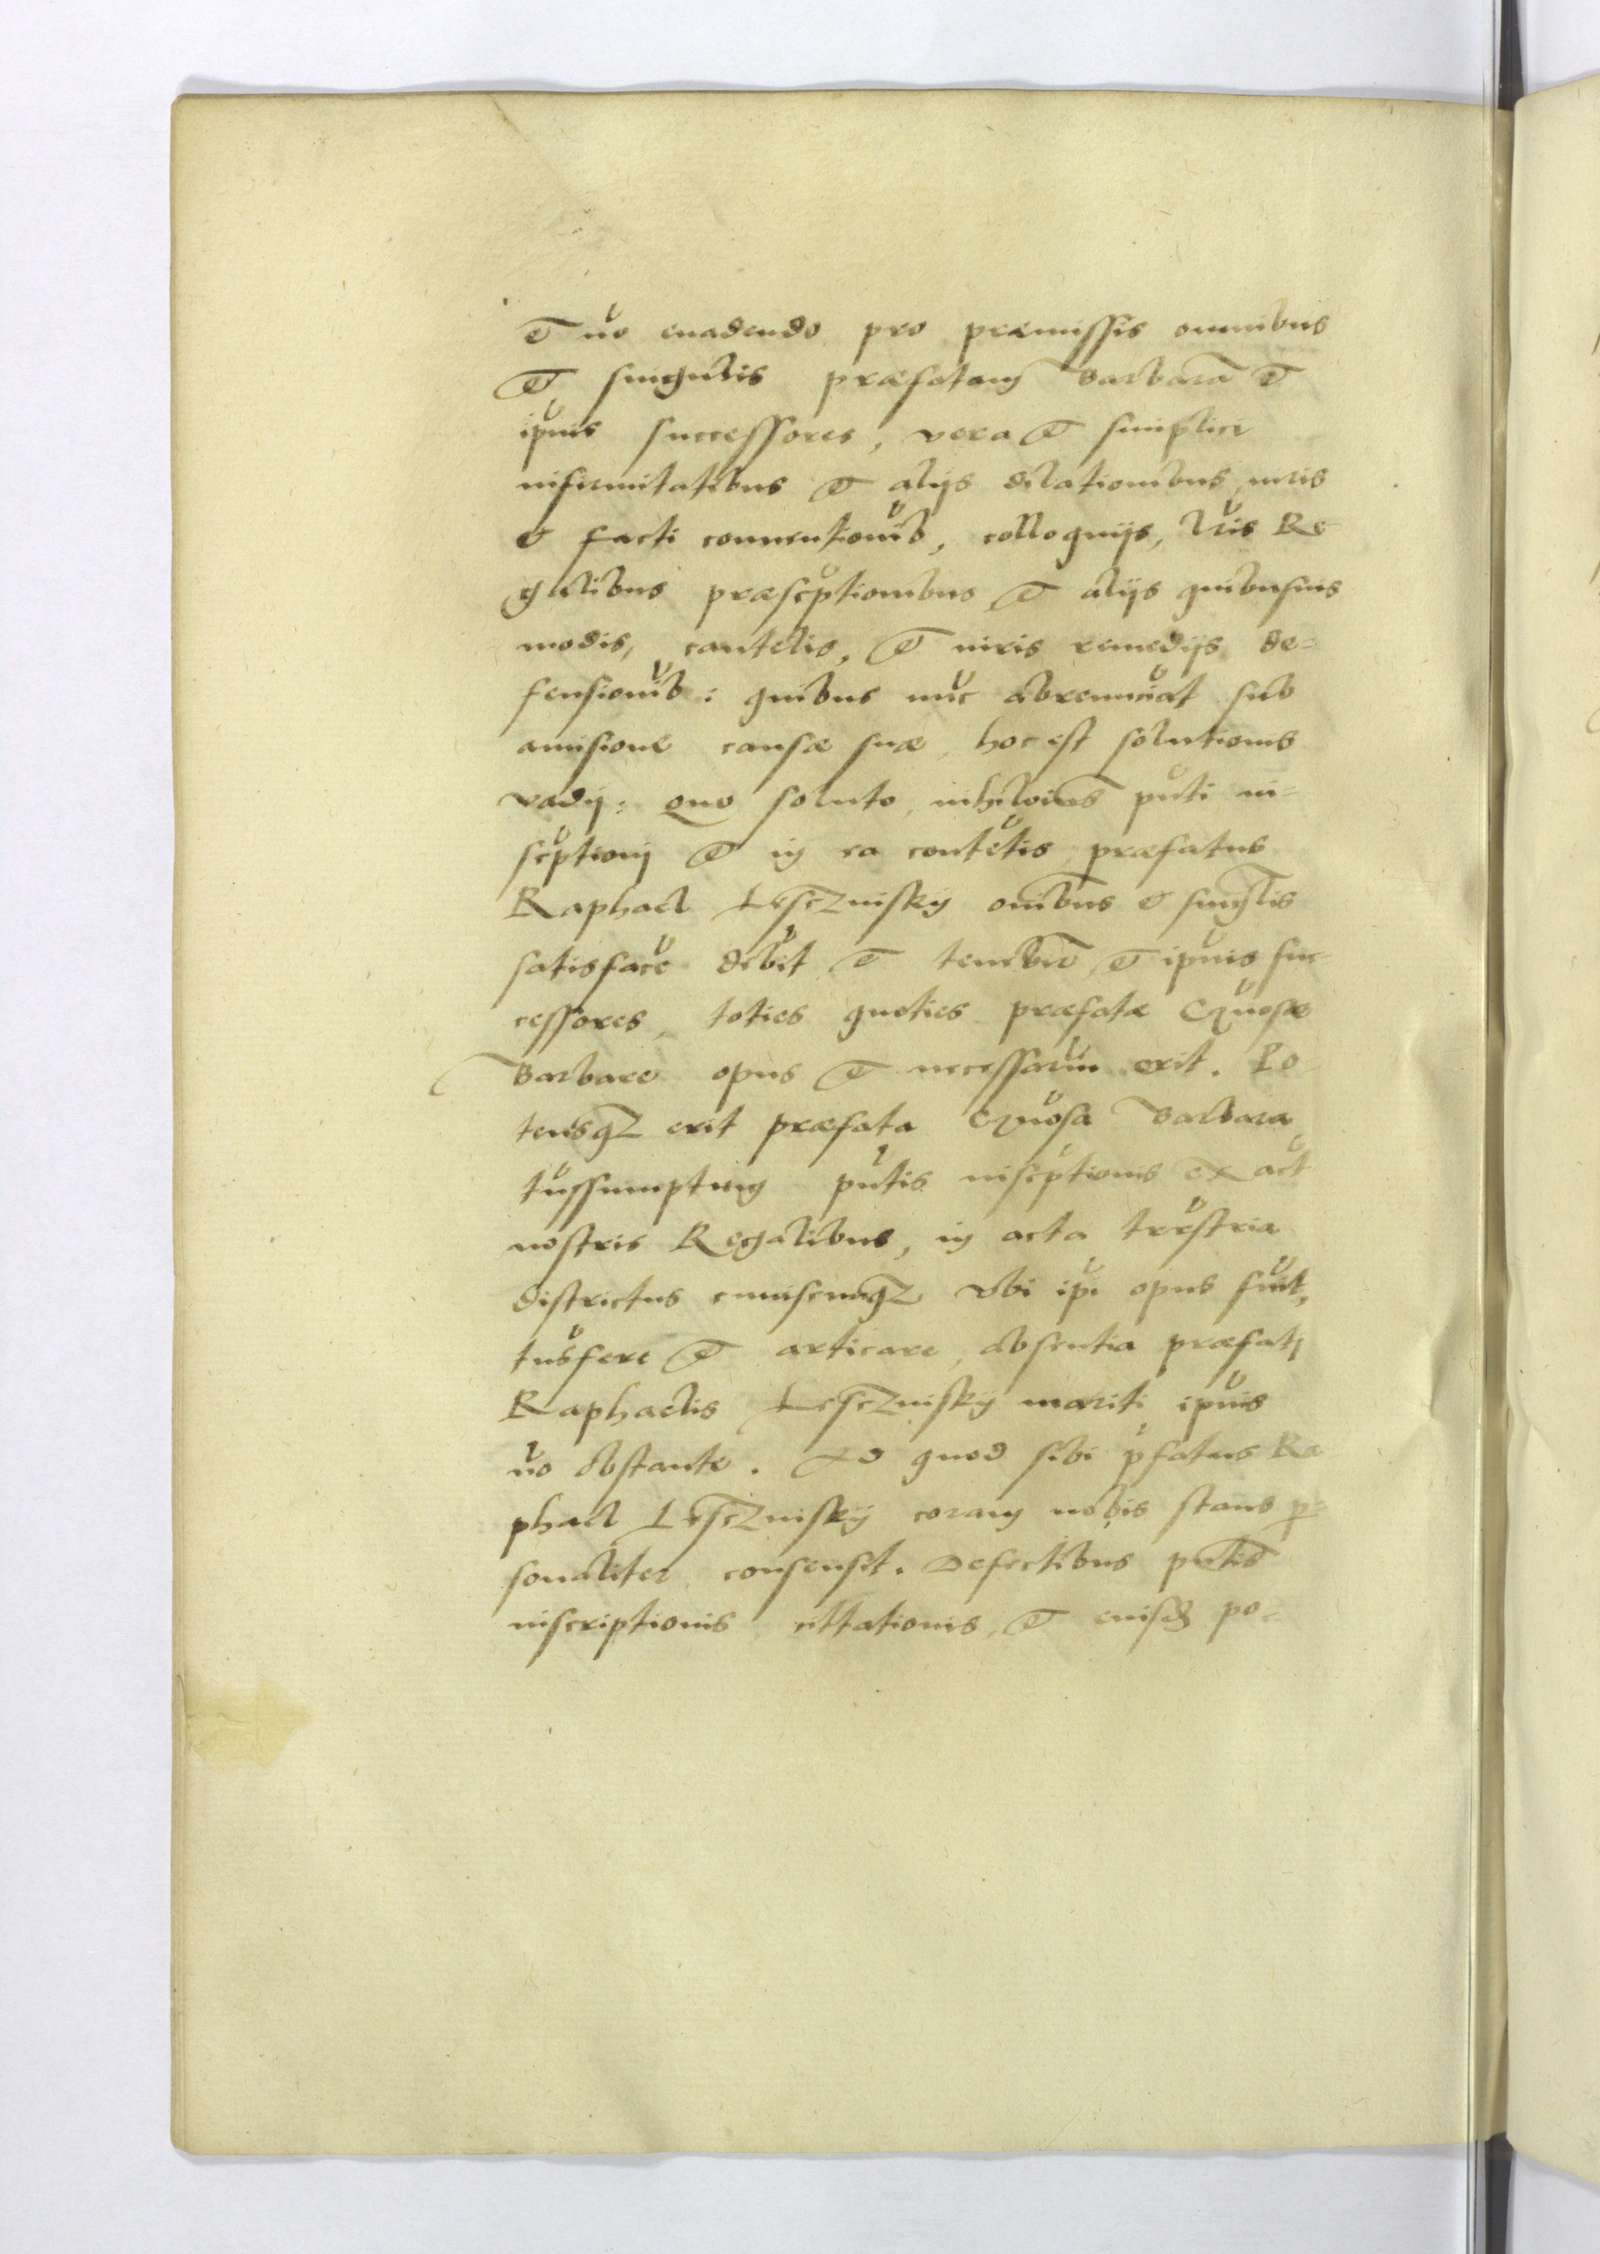 et no euadendo pro præmissis omnibus
et singulis præfatam Barbarā et
ipius successores, vera et simplici
infirmitatibus et alijs dilationibus iuris
et facti conuentionib, colloquijs, lris Re-
galibus præscptionibus et alijs quibusuis
modis, cautelis, et iuris remedijs de-
fensionib: quibus nuc abrenuciat sub
amisione causæ suæ, hoc est solutionis
vadij: Quo soluto, nihiloius pnti in-
scptioni et in ea contetis præfatus
Raphael Lesczinsky oibus et singlis
satisface debit et tenebit et ipius suc-
cessores, toties quoties præfatæ Gnosæ
Barbare opus et necessariu erit. Po-
tensqz erit præfata Gnosa Barbara
tnssumptum pntis inscptionis ex act
nostris Regalibus, in acta trestria
districtus cuiuscunqz vbi ipi opus fuit,
tnsfere et articare, absentia præfati
Raphaelis Lesczinsky mariti ipius
no obstante. Ad quod sibi pfatus Ra
phael Lesczinsky coram nobis stans p-
sonaliter consensit. Defectibus pntis
inscriptionis cittationis, et eiusd po-